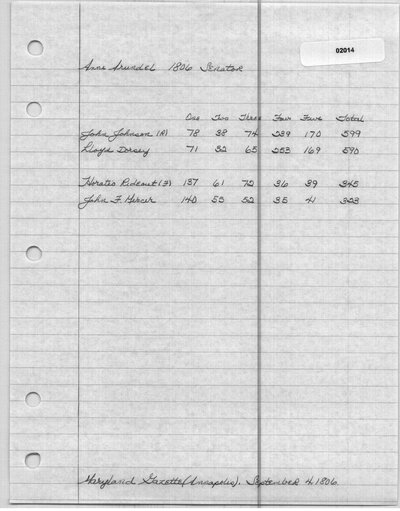 02014
Anne Arundel 1806 Senator
One Two Three Four Five Total
John Johnson (R) 78 38 74 239 170 599
Lloyd Dorsey 71 32 65 253 169 590
Horatio Rideout (F) 137 61 72 36 39 345
John F. Mercer 140 55 52 35 41 323
Maryland Gazette (Annapolis). September 4, 1806.